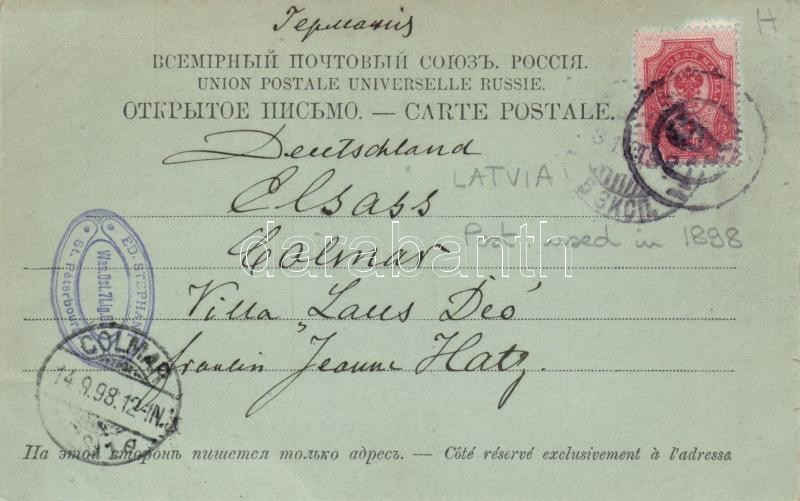 Германія
H
ВСЕМІРНЫЙ ПОЧТОВЫЙ СОЮЗЪ. РОССІЯ.
UNION POSTALE UNIVERSELLE RUSSIE.
ОТКРЫТОЕ ПИСЬМО. — CARTE POSTALE.
Deutschland
LATVIA
Elsass
Б ЭКСП.
Colmar
Post used in 1898
darabanth.com
ED. STEPHAN
Was. Ost. 7 Lig.
St. Péterbourg
Villa „Laus Deo"
Fraulin Jeanne Hatz.
COLMAR
14.9.98.12-1N.
На этой сторонѣ пишется только адресъ. — Côté réservé exclusivement à l'adresse